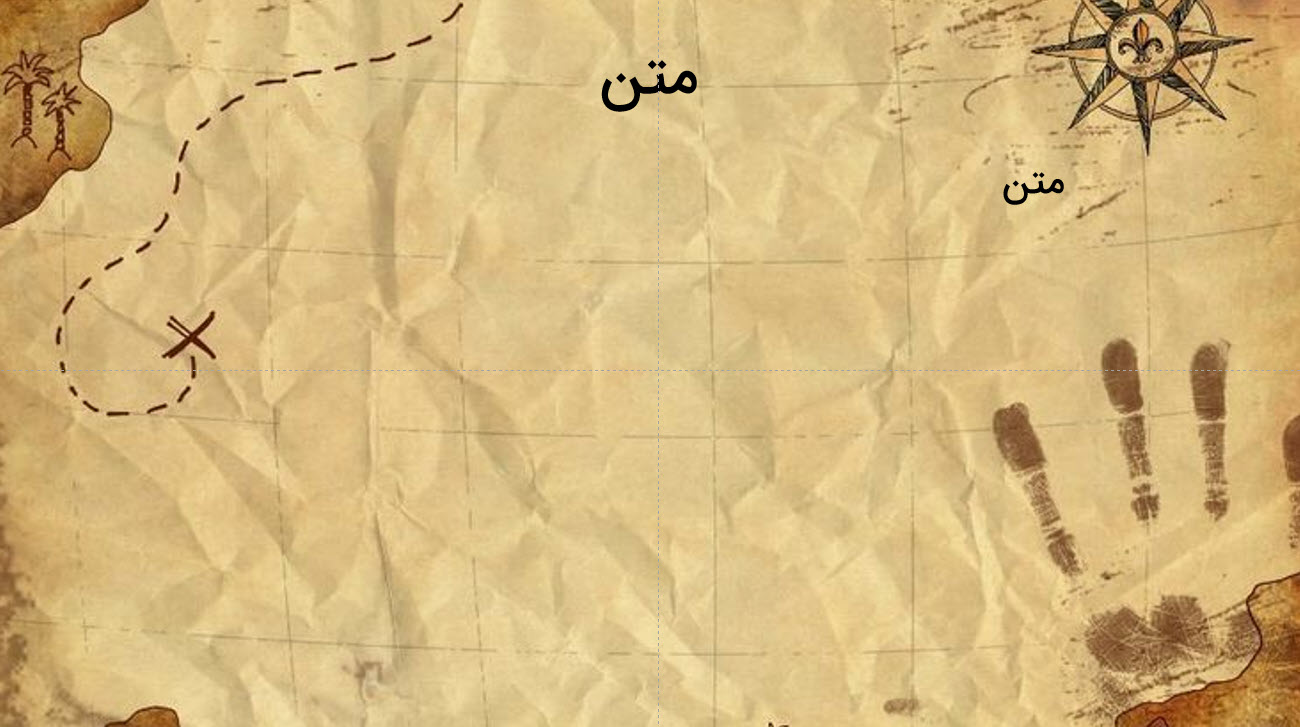 متن
متن